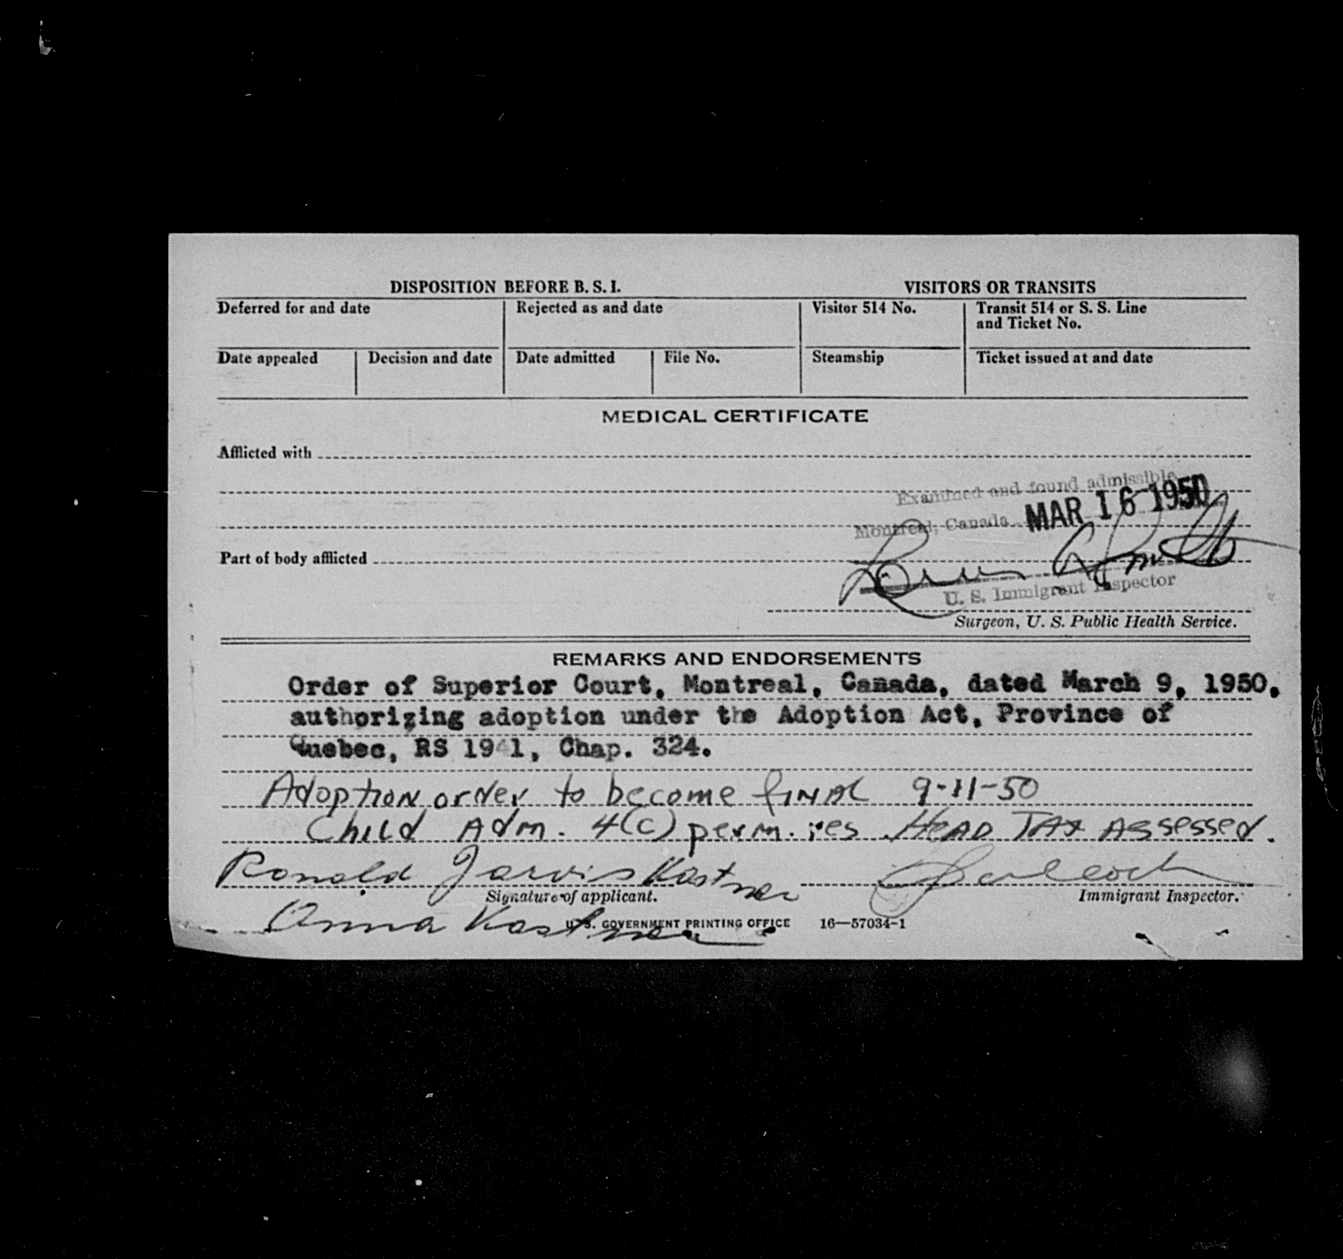 DISPOSITION BEFORE B. S. I.
VISITORS OR TRANSITS
Deferred for and date
Rejected as and date
Visitor 514 No.
Transit 514 or S. S. Line
and Ticket No.
Date appealed
Decision and date
Date admitted
File No.
Steamship
Ticket issued at and date
MEDICAL CERTIFICATE
Afflicted with
Examined and found admissible
Montreal, Canada MAR 16 1950
Part of body afflicted
U. S. Immigrant Inspector
Surgeon, U. S. Public Health Service.
REMARKS AND ENDORSEMENTS
Order of Superior Court, Montreal, Canada, dated March 9, 1950,
authorizing adoption under the Adoption Act, Province of
Quebec, RS 1941, Chap. 324.
Adoption order to become final 9-11-50
Child Adm. 4(c) perm. res HEAD TAX Assessed.
Ronald Jarvis Kastner
Signature of applicant.
Immigrant Inspector.
Anna Kastner
U. S. GOVERNMENT PRINTING OFFICE 16—57034-1